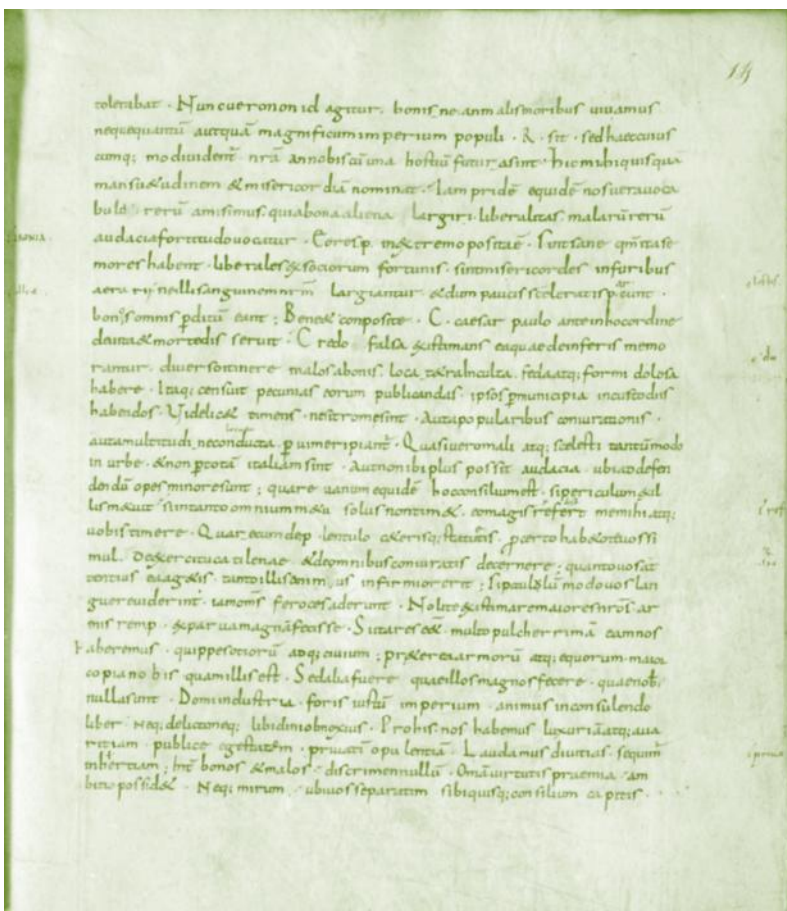 14
tolerabat · Nuncueronon id agitur · bonis ne an malismoribus uiuamus
nequequantū autquā magnificum imperium populi · R · sit · sedhaeccuius
cumq; modiuident̄ nrā annobiscū una hostiū futur asint · hicmihiquisquā
mansu&udinem & misericor diā nominat · Iam pridē equidē nosuerauoca
bula rerū amisimus · quiabonaaliena largiri · liberalitas malarū rerū
audaciafortitudouocatur · Eoresp · in&tremo positaē · Sintsane qm̄ itase
mores habent · liberales&sociorum fortunis · sintmisericordes infuribus
aerarii neillisanguinemnrm̄ largiantur &dum paucis sceleratis parcunt ·
bonos omnis pditū eant ; Bene& conposite · C · caesar paulo anteinhocordine
deuita&mortedis seruit · Credo falsa &istimans eaquaedeinferis memo
rantur · diuersoitinere malosabonis loca t&rainculta · fedaatq; formi dolosa
habere · Itaq; censuit pecunias eorum publicandas · ipsos pmunicipia incustodiis
habendos · Uidelic& timens · nesiromesint · Autapopularibus coniurationis ·
autamultitudi neconducta p uimeripiant̄ · Quasiueromali atq; scelesti tantūmodo
in urbe · &non ptotā italiam sint · Autnonibi plus possit audacia · ubiaddefen
dendū opes minoresunt ; quare uanum equidē hoconsiliumest · sipericulum&il
lism&uit siintanto omnium m&u solus nontim& · eomagis refert memihiatq;
uobistimere · Quar ecumdep · lentulo c&erisq; statuitis · pcerto hab&oteuossi
mul · De&ercitucatilenae &deomnibusconiuratis decernere ; quantouosat
tentius eaag&is · tantoillisanim us infirmiorerit ; Sipaululūmodouoslan
guereuiderint · iamom̄s feroces aderunt · Nolite&istimaremaioresnrōs ar
mis remp · &paruamagnāfecisse · Sitares e& multopulcherrimā eamnos
haberemus · quippesociorū adq; ciuium ; pr&ereaarmorū atq; equorum · maior
copianobis quamillis est · Sedaliafuere quaeillosmagnosfecere · quaenob̄
nullasunt · Domiindustria · foris iustū imperium · animus inconsulendo
liber neq; delictoneq; libidiniobnoxius · Prohis nos habemus luxuriāatq; aua
ritiam · publice egestatem · priuati opu lentiā · Laudamus diuitias · sequim̄
inhertiam ; Int̄ bonos &malos discrimennullū · Omīauirtutis praemia · am
bitio possid& · Neq; mirum · ubiuosseparatim sibiquisq; consilium capitis ·